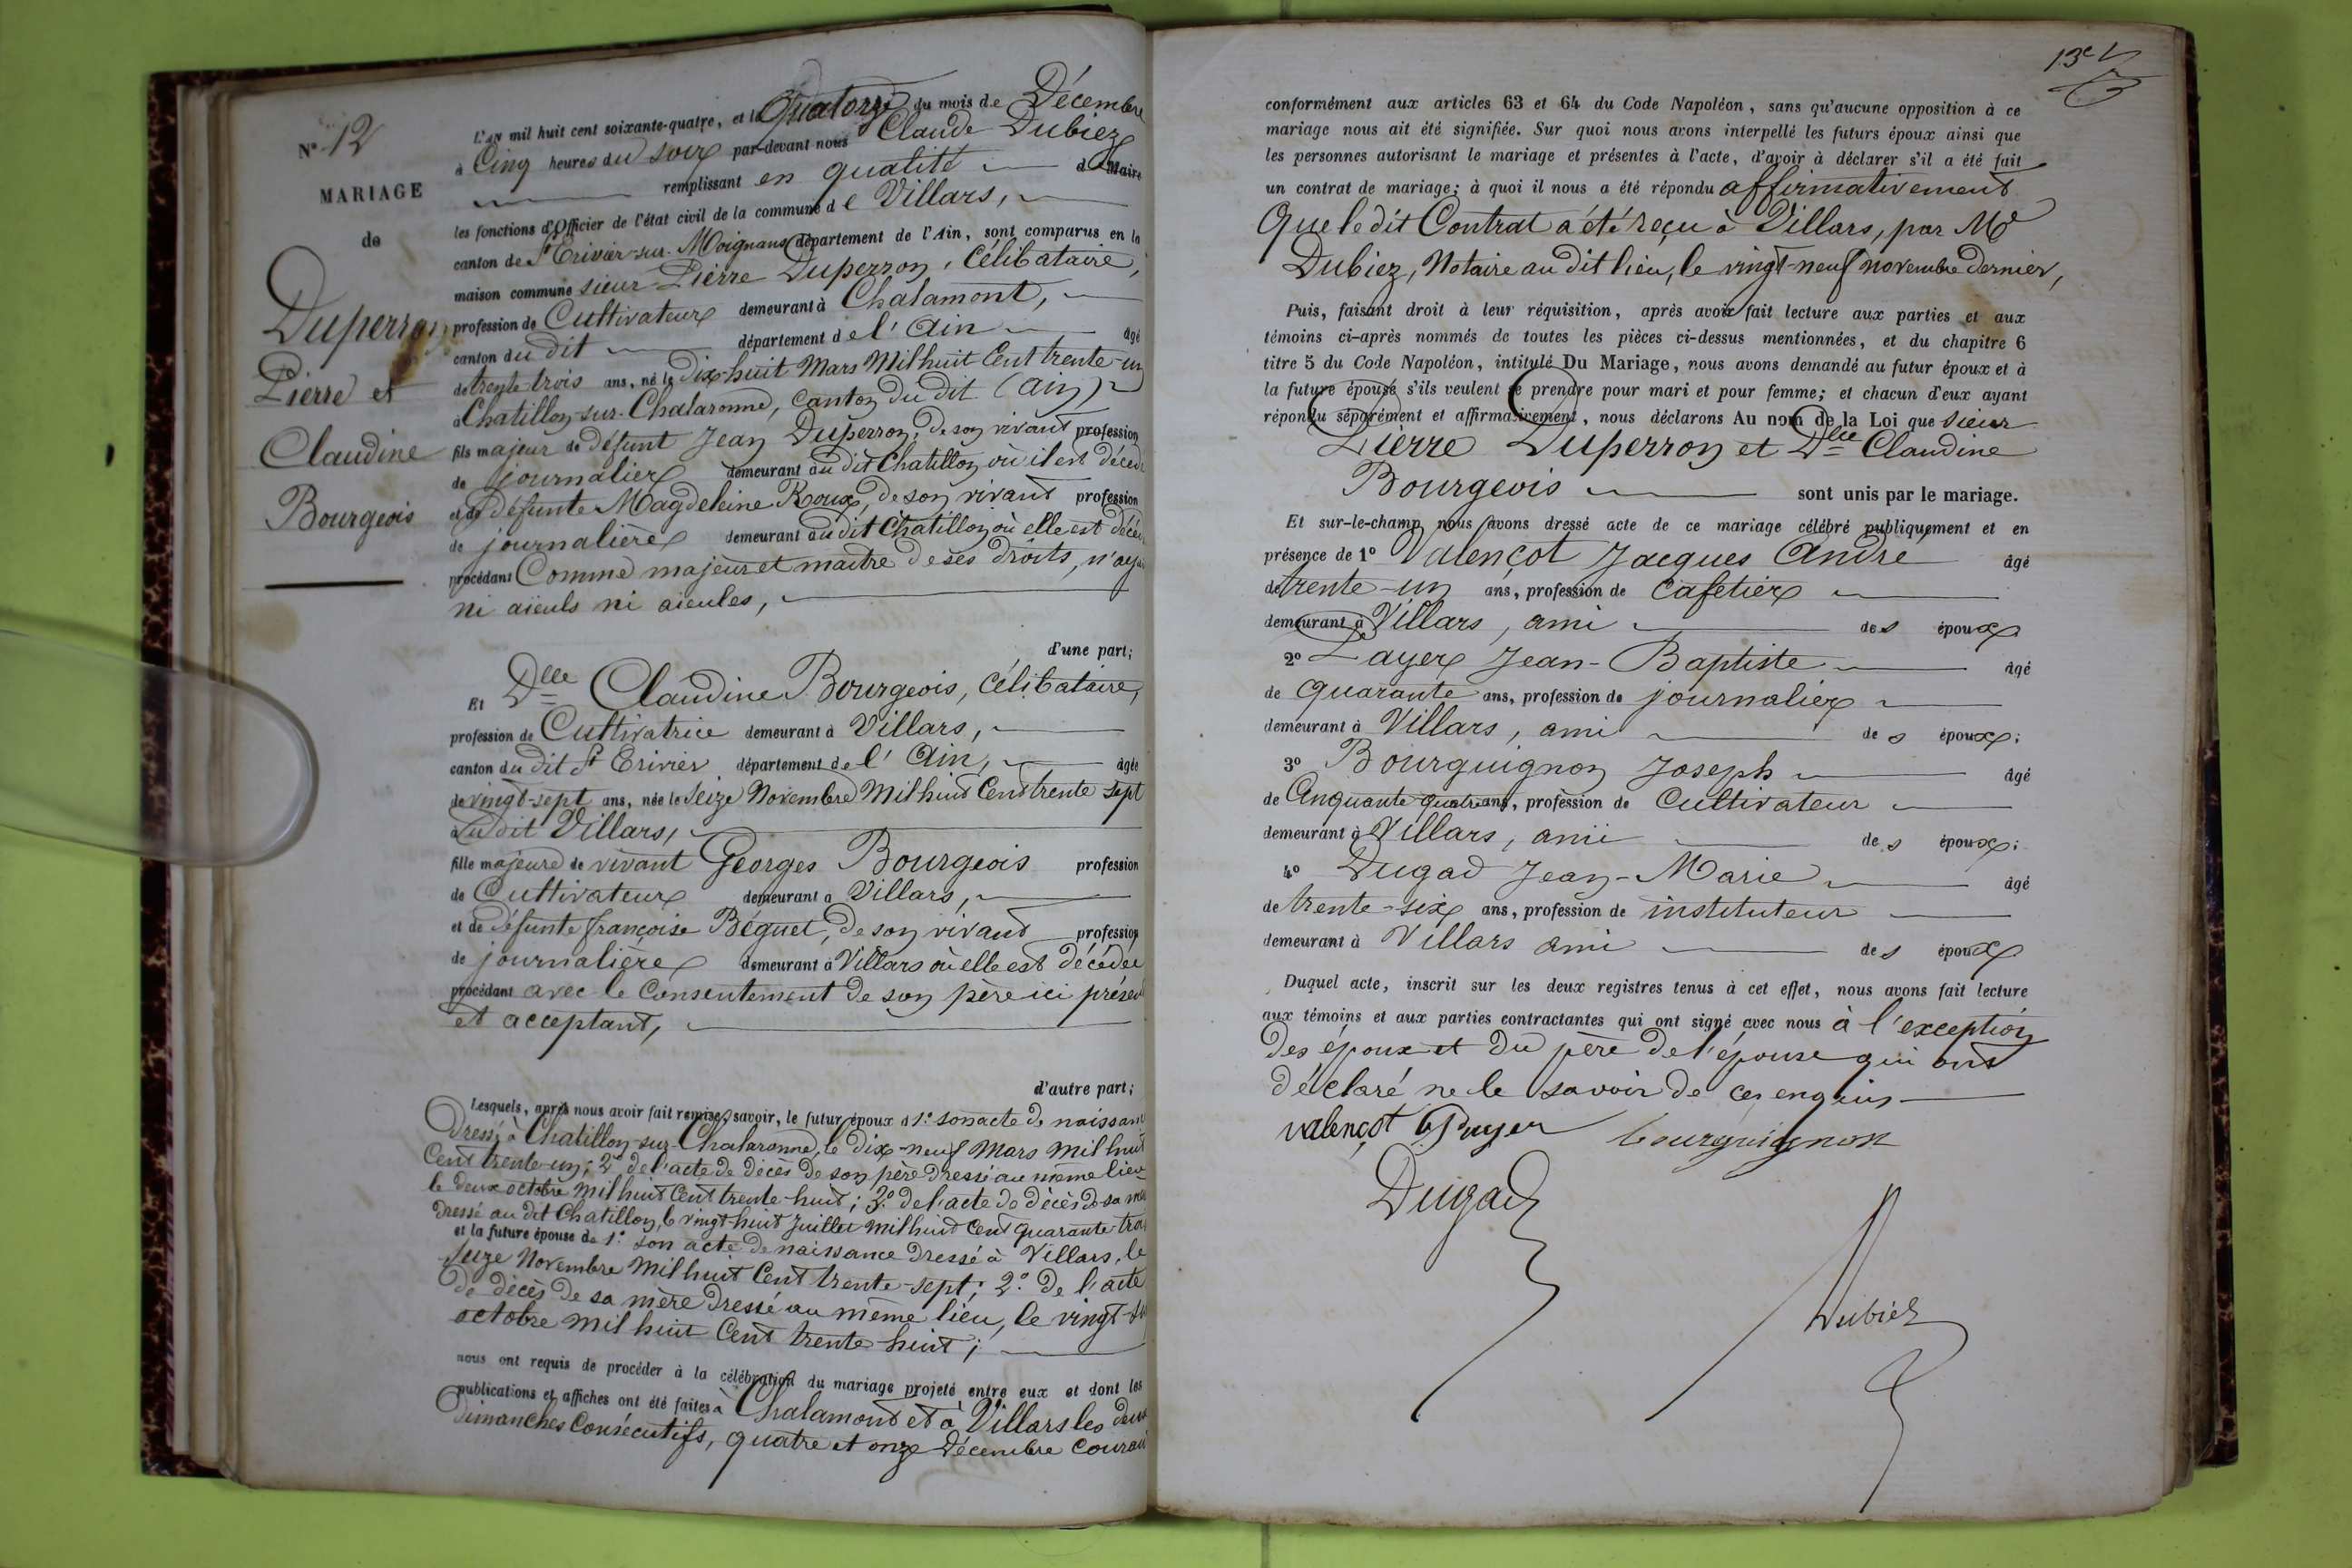 N° 12
MARIAGE
de
Duperron
Pierre et
Claudine
Bourgeois
L'an mil huit cent soixante-quatre, et le Quatorze du mois de Décembre
à Cinq heures du soir par-devant nous Claude Dubiez
remplissant en qualité de Maire
les fonctions d'Officier de l'état civil de la commune de Villars,
canton de St Trivier-sur-Moignans département de l'Ain, sont comparus en la
maison commune sieur Pierre Duperron, Célibataire,
profession de Cultivateur demeurant à Chalamont,
canton du dit département de l'Ain âgé
de trente trois ans, né le Dix-huit Mars Mil huit Cent trente-un
à Chatillon-sur-Chalaronne, Canton du dit (Ain)
fils majeur de défunt Jean Duperron, de son vivant profession
de journalier demeurant au dit Chatillon où il est décédé
et de défunte Magdeleine Roux, de son vivant profession
de journalière demeurant au dit Chatillon où elle est décéd
procédant Comme majeur et maître de ses droits, n'aya
ni aïeuls ni aïeules,
d'une part;
Et Dlle Claudine Bourgeois, Célibataire,
profession de Cultivatrice demeurant à Villars,
canton du dit St Trivier département de l'Ain, âgée
de vingt-sept ans, née le Seize Novembre Mil huit Cent trente sept
au dit Villars,
fille majeure de vivant Georges Bourgeois profession
de Cultivateur demeurant à Villars,
et de défunte françoise Béguet, de son vivant profession
de journalière demeurant à Villars où elle est décédée
procédant avec le Consentement de son père ici présent
et acceptant,
d'autre part;
Lesquels, après nous avoir fait remise, savoir, le futur époux d 1° son acte de naissan
dressé à Chatillon-sur-Chalaronne, le Dix-neuf Mars Mil huit
Cent trente-un; 2° de l'acte de décès de son père dressé au même lieu
le deux octobre Mil huit Cent trente-huit; 3° de l'acte de décès de sa mè
dressé au dit Chatillon, le vingt-huit Juillet Mil huit Cent quarante-troi
et la future épouse de 1° son acte de naissance dressé à Villars, le
Seize Novembre Mil huit Cent trente-sept; 2° de l'acte
de décès de sa mère dressé au même lieu, le vingt
octobre Mil huit Cent trente-huit;
nous ont requis de procéder à la célébration du mariage projeté entre eux et dont les
publications et affiches ont été faites à Chalamont et à Villars les deux
dimanches Consécutifs, quatre et onze Décembre Courant
13e
conformément aux articles 63 et 64 du Code Napoléon, sans qu'aucune opposition à ce
mariage nous ait été signifiée. Sur quoi nous avons interpellé les futurs époux ainsi que
les personnes autorisant le mariage et présentes à l'acte, d'avoir à déclarer s'il a été fait
un contrat de mariage; à quoi il nous a été répondu affirmativement
Que le dit Contrat a été reçu à Villars, par Me
Dubiez, Notaire au dit lieu, le vingt-neuf novembre dernier,
Puis, faisant droit à leur réquisition, après avoir fait lecture aux parties et aux
témoins ci-après nommés de toutes les pièces ci-dessus mentionnées, et du chapitre 6
titre 5 du Code Napoléon, intitulé Du Mariage, nous avons demandé au futur époux et à
la future épouse s'ils veulent se prendre pour mari et pour femme; et chacun d'eux ayant
répondu séparément et affirmativement, nous déclarons Au nom de la Loi que sieur
Pierre Duperron et Dlle Claudine
Bourgeois sont unis par le mariage.
Et sur-le-champ nous avons dressé acte de ce mariage célébré publiquement et en
présence de 1° Valençot Jacques André âgé
de trente-un ans, profession de Cafetier
demeurant à Villars, ami des époux
2° Payer Jean-Baptiste âgé
de quarante ans, profession de journalier
demeurant à Villars, ami des époux;
3° Bourguignon Joseph âgé
de Cinquante quatre ans, profession de Cultivateur
demeurant à Villars, ami des époux;
4° Dugad Jean-Marie âgé
de trente-six ans, profession de instituteur
demeurant à Villars ami des époux
Duquel acte, inscrit sur les deux registres tenus à cet effet, nous avons fait lecture
aux témoins et aux parties contractantes qui ont signé avec nous à l'exception
des époux et du père de l'épouse qui ont
déclaré ne le savoir de ce enquis
valençot Payer bourguignon
Dugad
Dubiez